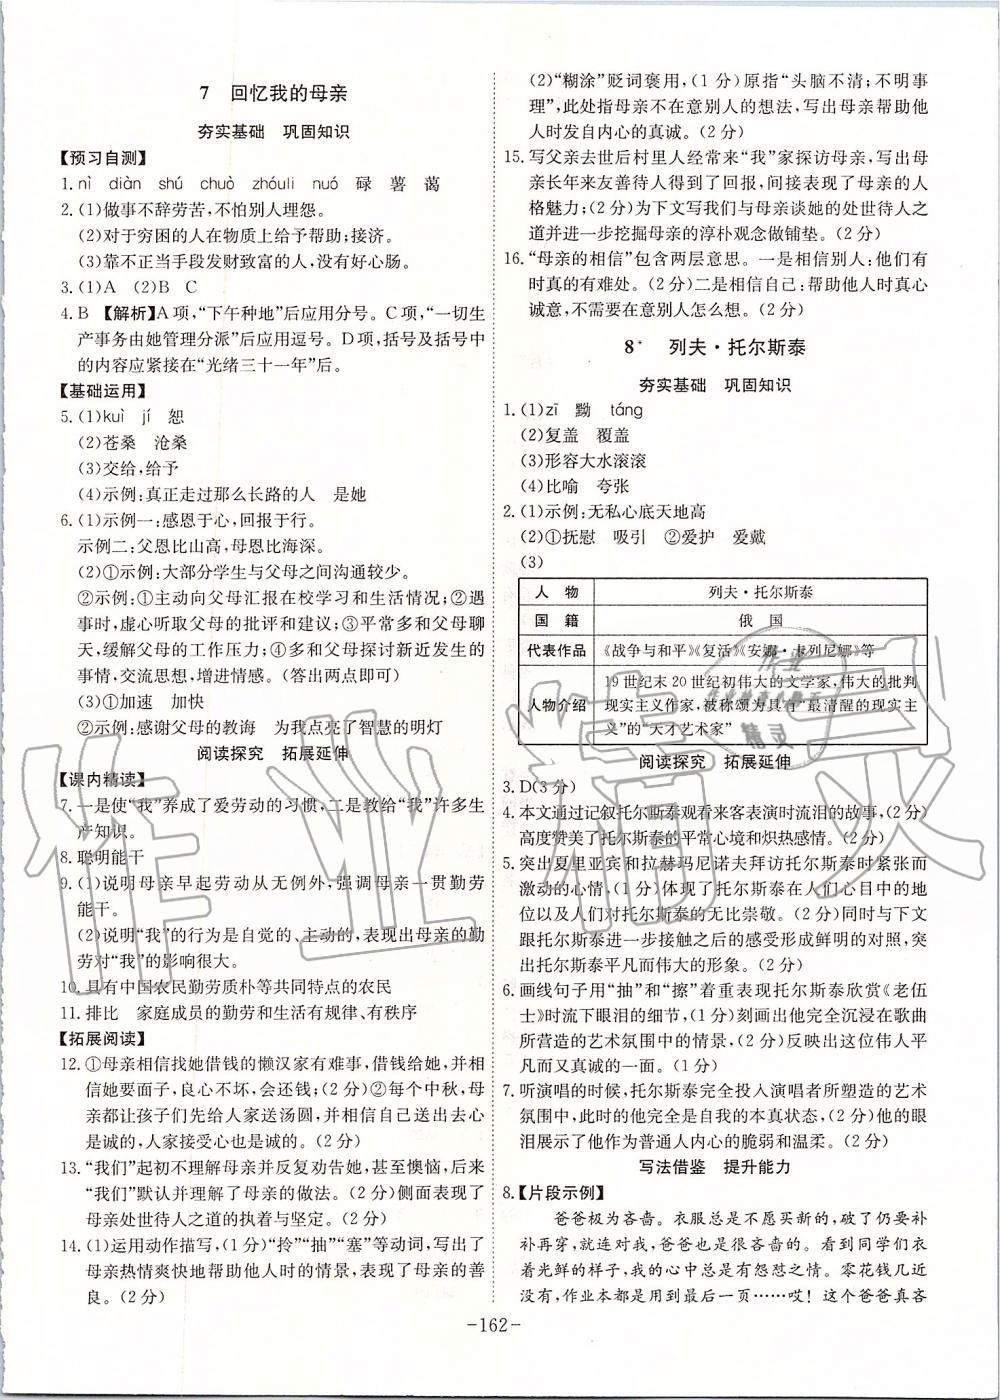 7 回忆我的母亲
夯实基础 巩固知识
【预习自测】
1. nì diàn shú chuò zhóuli nuó 碌 薯 蔼
2. (1)做事不辞劳苦,不怕别人埋怨。
(2)对于穷困的人在物质上给予帮助;接济。
(3)靠不正当手段发财致富的人,没有好心肠。
3. (1)A (2)B C
4. B 【解析】A项,“下午种地”后应用分号。C项,“一切生
产事务由她管理分派”后应用逗号。D项,括号及括号中
的内容应紧接在“光绪三十一年”后。
【基础运用】
5. (1)kuì jí 恕
(2)苍桑 沧桑
(3)交给,给予
(4)示例:真正走过那么长路的人 是她
6. (1)示例一:感恩于心,回报于行。
示例二:父恩比山高,母恩比海深。
(2)①示例:大部分学生与父母之间沟通较少。
②示例:①主动向父母汇报在校学习和生活情况;②遇
事时,虚心听取父母的批评和建议;③平常多和父母聊
天,缓解父母的工作压力;④多和父母探讨新近发生的
事情,交流思想,增进情感。(答出两点即可)
(3)①加速 加快
②示例:感谢父母的教诲 为我点亮了智慧的明灯
阅读探究 拓展延伸
【课内精读】
7. 一是使“我”养成了爱劳动的习惯,二是教给“我”许多生
产知识。
8. 聪明能干
9. (1)说明母亲早起劳动从无例外,强调母亲一贯勤劳
能干。
(2)说明“我”的行为是自觉的、主动的,表现出母亲的勤
劳对“我”的影响很大。
10. 具有中国农民勤劳质朴等共同特点的农民
11. 排比 家庭成员的勤劳和生活有规律、有秩序
【拓展阅读】
12. ①母亲相信找她借钱的懒汉家有难事,借钱给她,并相
信她要面子,良心不坏,会还钱;(2分)②每个中秋,母
亲都让孩子们先给人家送汤圆,并相信自己送出去出
是诚的,人家接受心也是诚的。(2分)
13. “我们”起初不理解母亲并反复劝告她,甚至懊恼,后来
“我们”默认并理解了母亲的做法。(2分)侧面表现了
母亲处世待人之道的执着与坚定。(2分)
14. (1)运用动作描写,(1分)“拎”“抽”“塞”等动词,写出了
母亲热情爽快地帮助他人时的情景,表现了母亲的善
良。(2分)
(2)“糊涂”贬词褒用,(1分)原指“头脑不清;不明事
理”,此处指母亲不在意别人的想法,写出母亲帮助他
人时发自内心的真诚。(2分)
15. 写父亲去世后村里人经常来“我”家探访母亲,写出母
亲长年来友善待人得到了回报,间接表现了母亲的人
格魅力;(2分)为下文写我们与母亲谈她的处世待人之
道并进一步挖掘母亲的淳朴观念做铺垫。(2分)
16. “母亲的相信”包含两层意思。一是相信别人:他们有
时真的有难处。(2分)二是相信自己:帮助他人时真心
诚意,不需要在意别人怎么想。(2分)
8* 列夫·托尔斯泰
夯实基础 巩固知识
1. (1)zī 黝 táng
(2)复盖 覆盖
(3)形容大水滚滚
(4)比喻 夸张
2. (1)示例:无私心底天地高
(2)①抚慰 吸引 ②爱护 爱戴
(3)
人 物 列夫·托尔斯泰
国 籍 俄 国
代表作品 《战争与和平》《复活》《安娜·卡列尼娜》等
人物介绍 19世纪末20世纪初伟大的文学家,伟大的批判
现实主义作家,被称颂为具有“最清醒的现实主
义”的“天才艺术家”
阅读探究 拓展延伸
3. D(3分)
4. 本文通过记叙托尔斯泰观看来客表演时流泪的故事,(2分)
高度赞美了托尔斯泰的平常心境和炽热感情。(2分)
5. 突出夏里亚宾和拉赫玛尼诺夫拜访托尔斯泰时紧张而
激动的心情,(1分)体现了托尔斯泰在人们心目中的地
位以及人们对托尔斯泰的无比崇敬。(2分)同时与下文
跟托尔斯泰进一步接触之后的感受形成鲜明的对照,突
出托尔斯泰平凡而伟大的形象。(2分)
6. 画线句子用“抽”和“擦”着重表现托尔斯泰欣赏《老伍
士》时流泪的细节,(1分)刻画出他完全沉浸在歌曲
所营造的艺术氛围中的情景,(2分)反映出这位伟人平
凡而又真诚的一面。(1分)
7. 听演唱的时候,托尔斯泰完全投入演唱者所塑造的艺术
氛围中,此时的他完全是自我的本真状态,(2分)他的眼
泪展示了他作为普通人内心的脆弱和温柔。(2分)
写法借鉴 提升能力
8. 【片段示例】
爸爸极为吝啬。衣服总是不愿买新的,破了仍要补
补再穿,就连对我,爸爸也是很吝啬的。看到同学们衣
着光鲜的样子,我的心中总是有怨怼之情。零花钱几近
没有,作业本都是用到最后一页……哎!这个爸爸真吝
-162-
作业精灵
作业
精灵